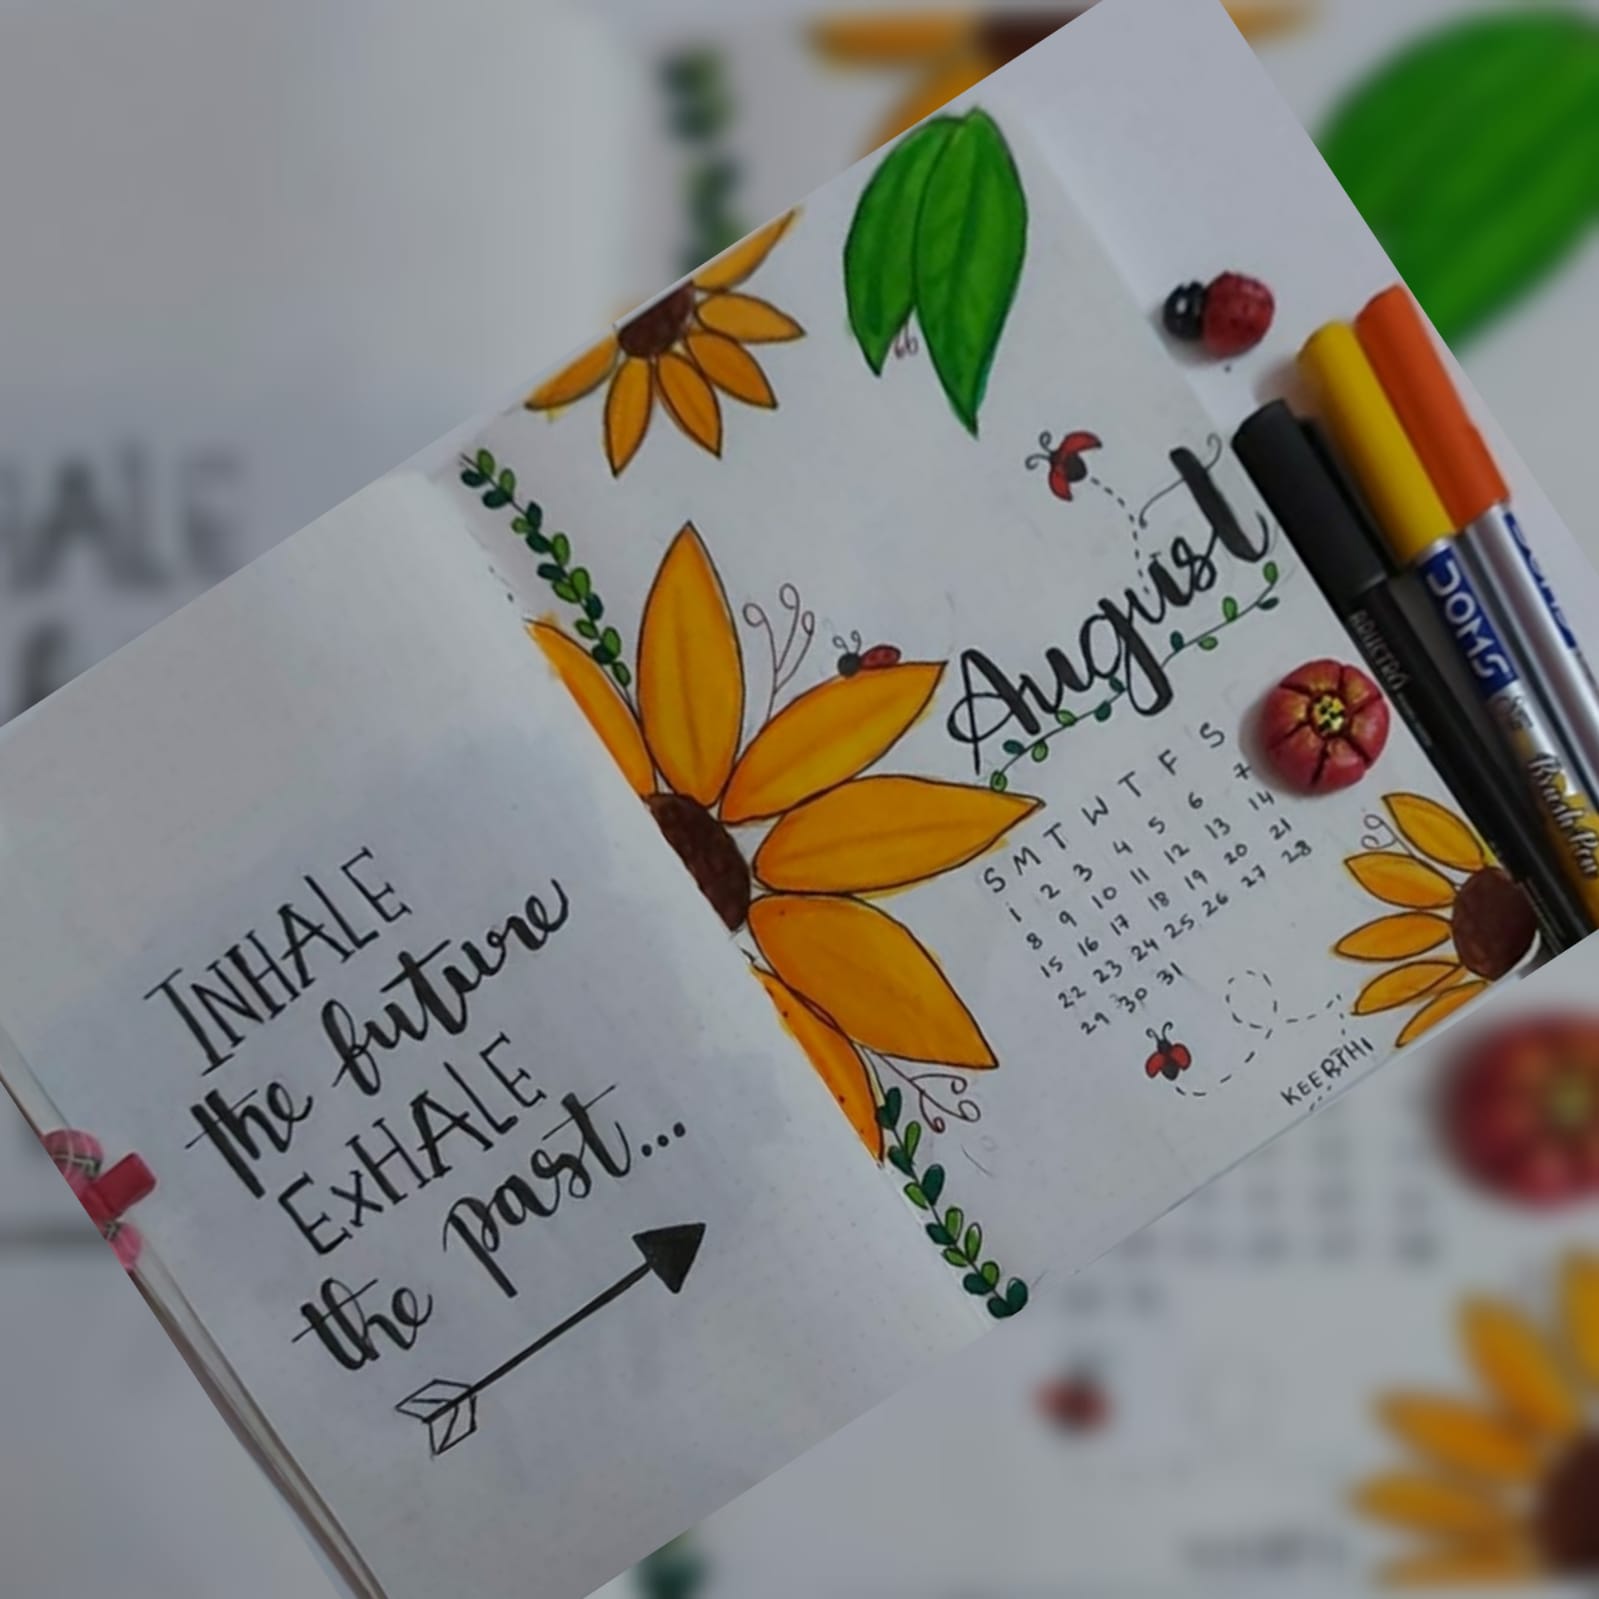 INHALE
the future
ExHALE
the past...
August
S M T W T F S
1 2 3 4 5 6 7
8 9 10 11 12 13 14
15 16 17 18 19 20 21
22 23 24 25 26 27 28
29 30 31
KEERTHI
DOMS
Brush Pen